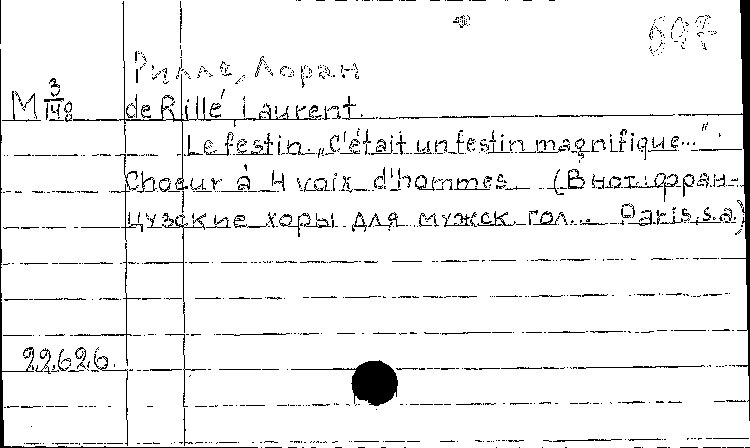 597
Рилле, Лоран
М 3/148 de Rillé Laurent.
Le festin. „C'était un festin magnifique...".
Choeur à 4 voix d'hommes. (В нот.: Фран-
цузские хоры для мужск. гол... Paris, s.a.)
22.626.